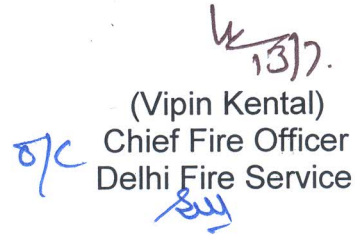 13/7.
(Vipin Kental)
Chief Fire Officer
O/C
Delhi Fire Service